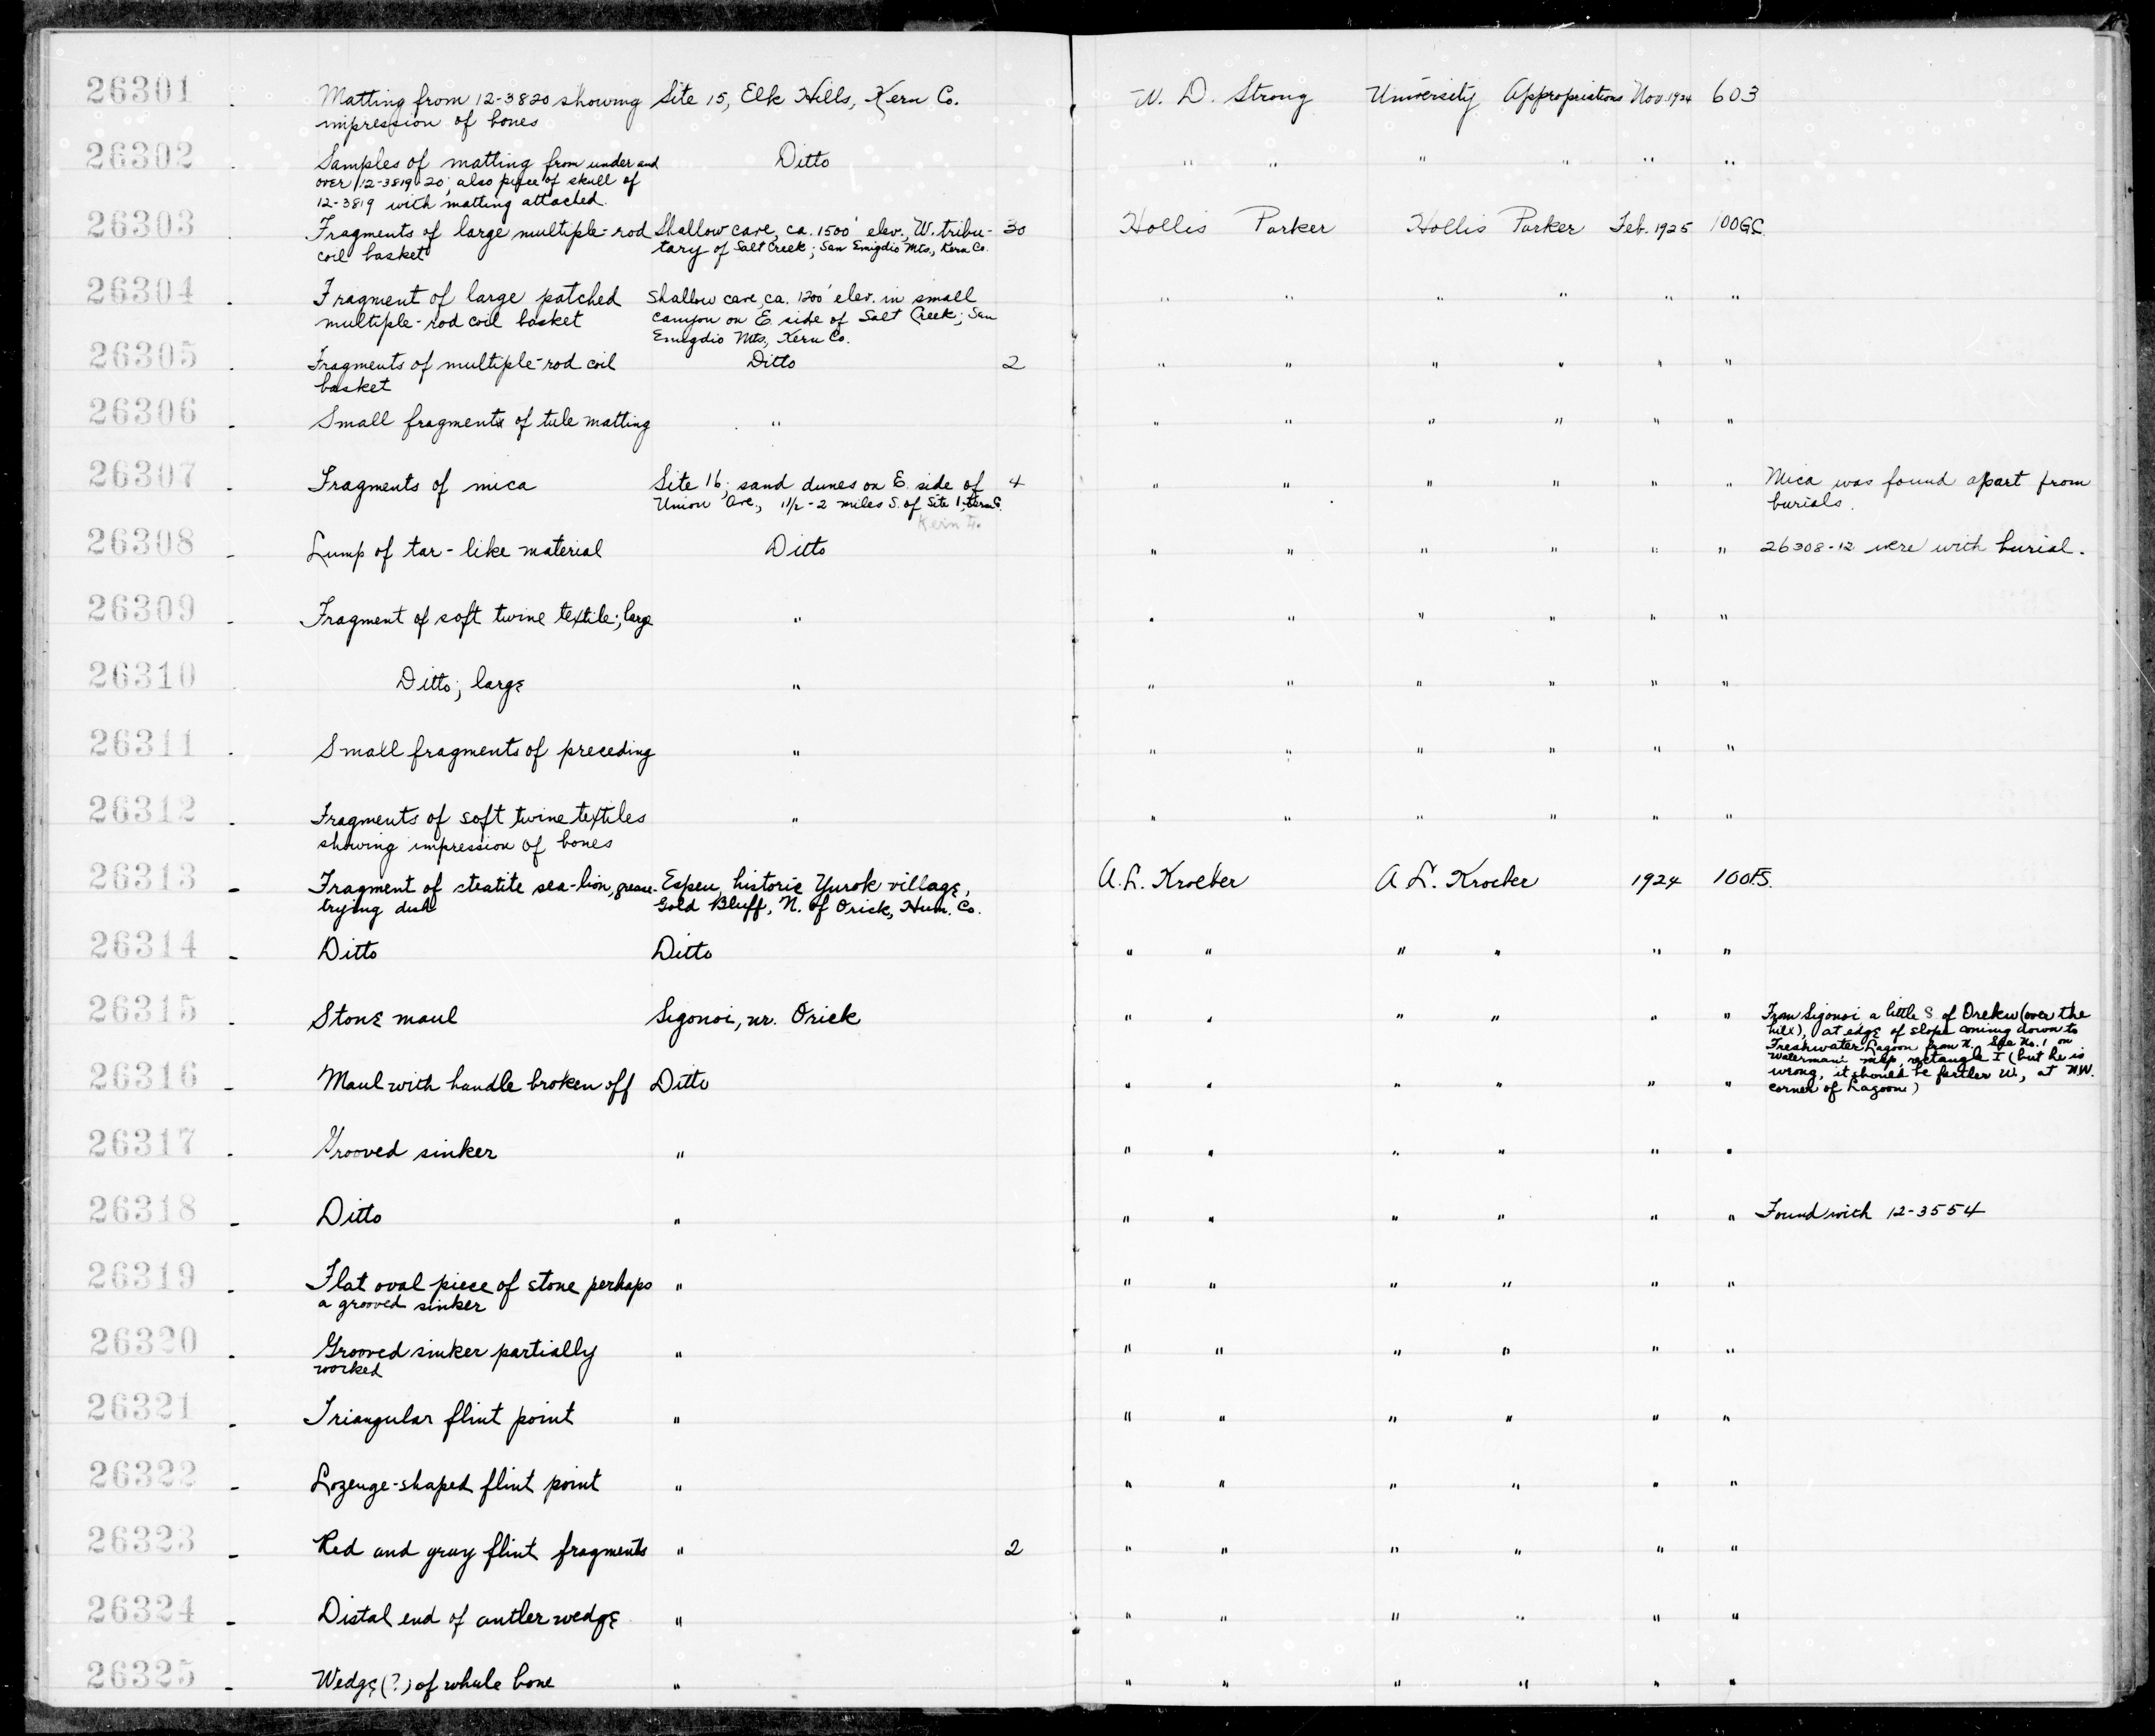 26301 . Matting from 12-3820 showing Site 15, Elk Hills, Kern Co. W. D. Strong University Appropriations Nov. 1924 603
impression of bones
26302 . Samples of matting from under and Ditto " " " " " "
over 12-3819-20; also piece of skull of
12-3819 with matting attached.
26303 . Fragments of large multiple-rod Shallow cave, ca. 1500' elev., W. tribu- 30 Hollis Parker Hollis Parker Feb. 1925 100GC.
coil basket tary of Salt Creek; San Emigdio Mts, Kern Co.
26304 . Fragment of large patched Shallow cave, ca. 1200' elev. in small " " " " " "
multiple-rod coil basket canyon on E. side of Salt Creek; San
Emigdio Mts, Kern Co.
26305 . Fragments of multiple-rod coil Ditto 2 " " " " " "
basket
26306 - Small fragments of tule matting " " " " " " "
26307 - Fragments of mica Site 16; sand dunes on E. side of 4 " " " " " " Mica was found apart from
Union Ave., 1 1/2 - 2 miles S. of Site 1, Kern Co. burials.
Kern
26308 - Lump of tar-like material Ditto " " " " " " 26308-12 were with burial.
26309 - Fragment of soft twine textile; large " " " " " " "
26310 . Ditto; large " " " " " " "
26311 . Small fragments of preceding " " " " " " "
26312 . Fragments of soft twine textiles " " " " " " "
showing impression of bones
26313 - Fragment of steatite sea-lion, grease- Espeu, historic Yurok village, A. L. Kroeber A. L. Kroeber 1924 100FS.
trying dish Gold Bluff, N. of Orick, Hum. Co.
26314 - Ditto Ditto " " " " " "
26315 . Stone maul Sigonoi, nr. Orick " " " " " " From Sigonoi a little S of Orekw (over the
hill), at edge of slope coming down to
Freshwater Lagoon from N. See No. 1 on
Waterman's map, rectangle I (but he is
26316 - Maul with handle broken off Ditto " " " " " " wrong, it should be farther W., at N.W.
corner of Lagoon)
26317 - Grooved sinker " " " " " " "
26318 - Ditto " " " " " " " Found with 12-3554
26319 . Flat oval piece of stone perhaps " " " " " " "
a grooved sinker
26320 . Grooved sinker partially " " " " " " "
worked
26321 - Triangular flint point " " " " " " "
26322 - Lozenge-shaped flint point " " " " " " "
26323 - Red and gray flint fragments " 2 " " " " " "
26324 - Distal end of antler wedge " " " " " " "
26325 - Wedge (?) of whale bone " " " " " " "